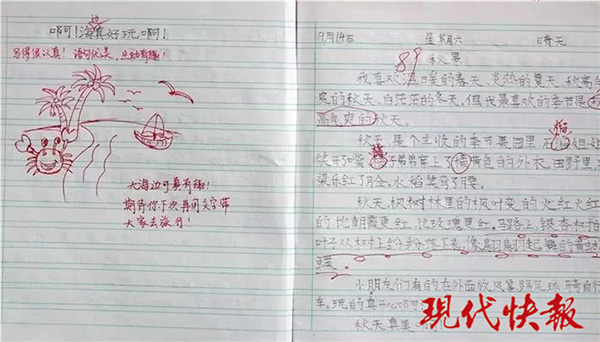 啊!海边真好玩啊!
写得很认真!语句优美,生动有趣!
大海边可真有趣!
期待你下次再用文字带
大家去旅行!
9月14日 星期六 晴天
89
秋景
我喜欢暖的春天,炎热的夏天,秋高气
爽的秋天,白茫茫的冬天。但我最喜欢的季节是秋
高气爽的秋天。
秋天是个丰收的季节果园里石榴姐姐
笑开了嘴,子弟弟穿上了橙黄色的外衣,田野里,高
梁乐红了脸,水稻笑弯了腰。
秋天,枫树林里的枫叶变的火红火红
的,比朝霞更红,比玫瑰更红。马路上,银杏树的
叶子从树上纷纷落下来,像翩翩起舞的黄蝴
蝶。
小朋友们有的在外面放风筝,踢足球,骑自行
车。玩的真开心啊
秋天真美
現代快報